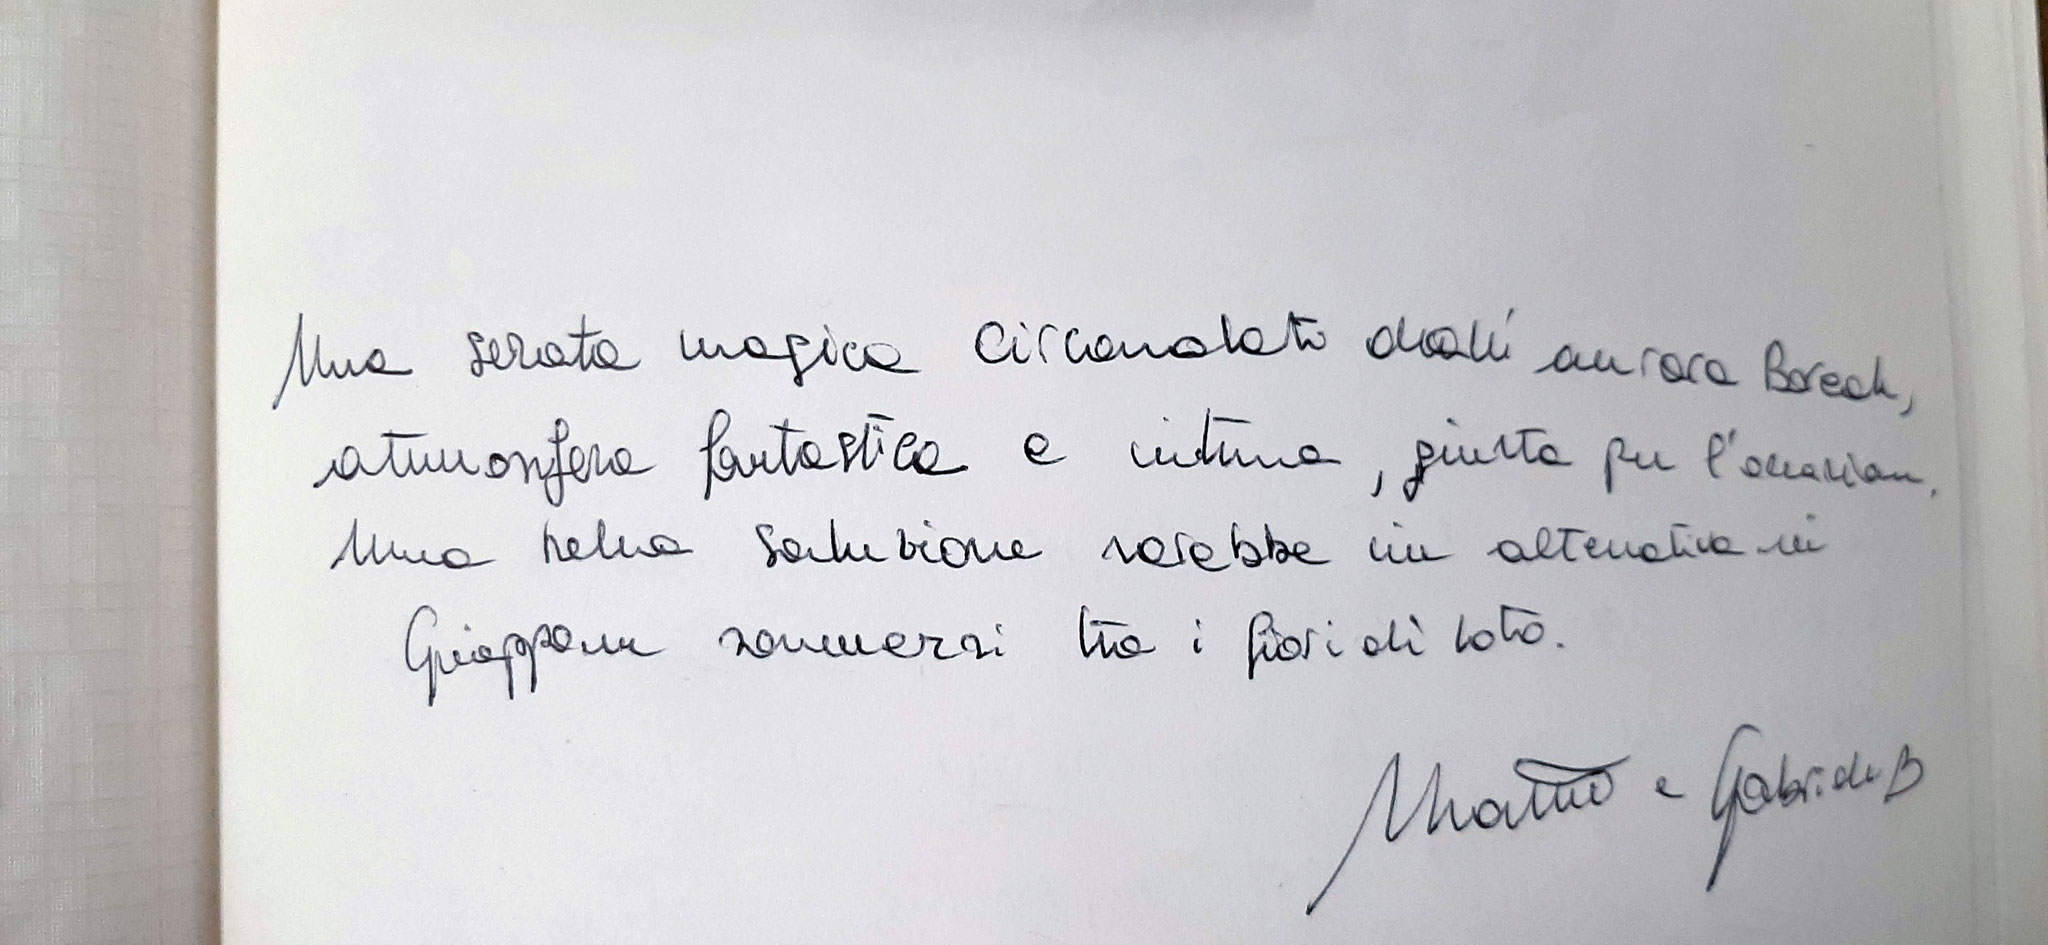 Una serata magica circondato dall' aurora Boreale,
atmosfera fantastica e intima, giusta per l'occasione.
Una bella soluzione sarebbe in alternativa in
Giappone sommersi tra i fiori di loto.
Matteo e Gabriele B